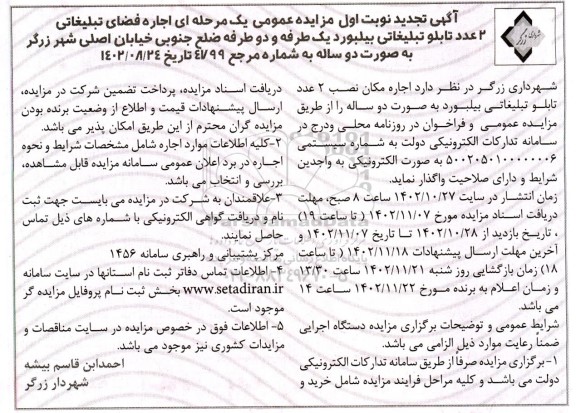 آگهی تجدید نوبت اول مزایده عمومی یک مرحله ای اجاره فضای تبلیغاتی
۲ عدد تابلو تبلیغاتی بیلبورد یک طرفه و دو طرفه ضلع جنوبی خیابان اصلی شهر زرگر
به صورت دو ساله به شماره مرجع ۴۷/۹۹ تاریخ ۱۴۰۲/۰۸/۲۴
شهرداری زرگر در نظر دارد اجاره مکان نصب ۲ عدد
تابلو تبلیغاتی بیلبورد به صورت دو ساله را از طریق
مزایده عمومی و فراخوان در روزنامه محلی ودرج در
سامانه تدارکات الکترونیکی دولت به شماره سیستمی
۵۰۰۲۰۵۰۱۰۰۰۰۰۰۶ به صورت الکترونیکی به واجدین
شرایط و دارای صلاحیت واگذار نماید.
زمان انتشار در سایت ۱۴۰۲/۱۰/۲۷ ساعت ۸ صبح، مهلت
دریافت اسناد مزایده مورخ ۱۴۰۲/۱۱/۰۷ ( تا ساعت ۱۹)
، تاریخ بازدید از ۱۴۰۲/۱۰/۲۸ تا تاریخ ۱۴۰۲/۱۱/۰۷ و
آخرین مهلت ارسال پیشنهادات ۱۴۰۲/۱۱/۱۸ ( تا ساعت
۱۸) زمان بازگشایی روز شنبه ۱۴۰۲/۱۱/۲۱ ساعت ۱۳/۳۰
و زمان اعلام به برنده مورخ ۱۴۰۲/۱۱/۲۲ ساعت ۱۴
می باشد.
شرایط عمومی و توضیحات برگزاری مزایده دستگاه اجرایی
ضمناً رعایت موارد ذیل الزامی می باشد.
۱-برگزاری مزایده صرفاً از طریق سامانه تدارکات الکترونیکی
دولت می باشد و کلیه مراحل فرایند مزایده شامل خرید و
دریافت اسناد مزایده، پرداخت تضمین شرکت در مزایده،
ارسال پیشنهادات قیمت و اطلاع از وضعیت برنده بودن
مزایده گران محترم از این طریق امکان پذیر می باشد.
۲-کلیه اطلاعات موارد اجاره شامل مشخصات شرایط و نحوه
اجاره در برد اعلان عمومی سامانه مزایده قابل مشاهده،
بررسی و انتخاب می باشد.
۳-علاقمندان به شرکت در مزایده می بایست جهت ثبت
نام و دریافت گواهی الکترونیکی با شماره های ذیل تماس
حاصل نمایند.
مرکز پشتیبانی و راهبری سامانه ۱۴۵۶
۴- اطلاعات تماس دفاتر ثبت نام استانها در سایت سامانه
www.setadiran.ir بخش ثبت نام پروفایل مزایده گر
موجود است.
۵- اطلاعات فوق در خصوص مزایده در سایت مناقصات و
مزایدات کشوری نیز موجود می باشد.
احمدابن قاسم بیشه
شهردار زرگر